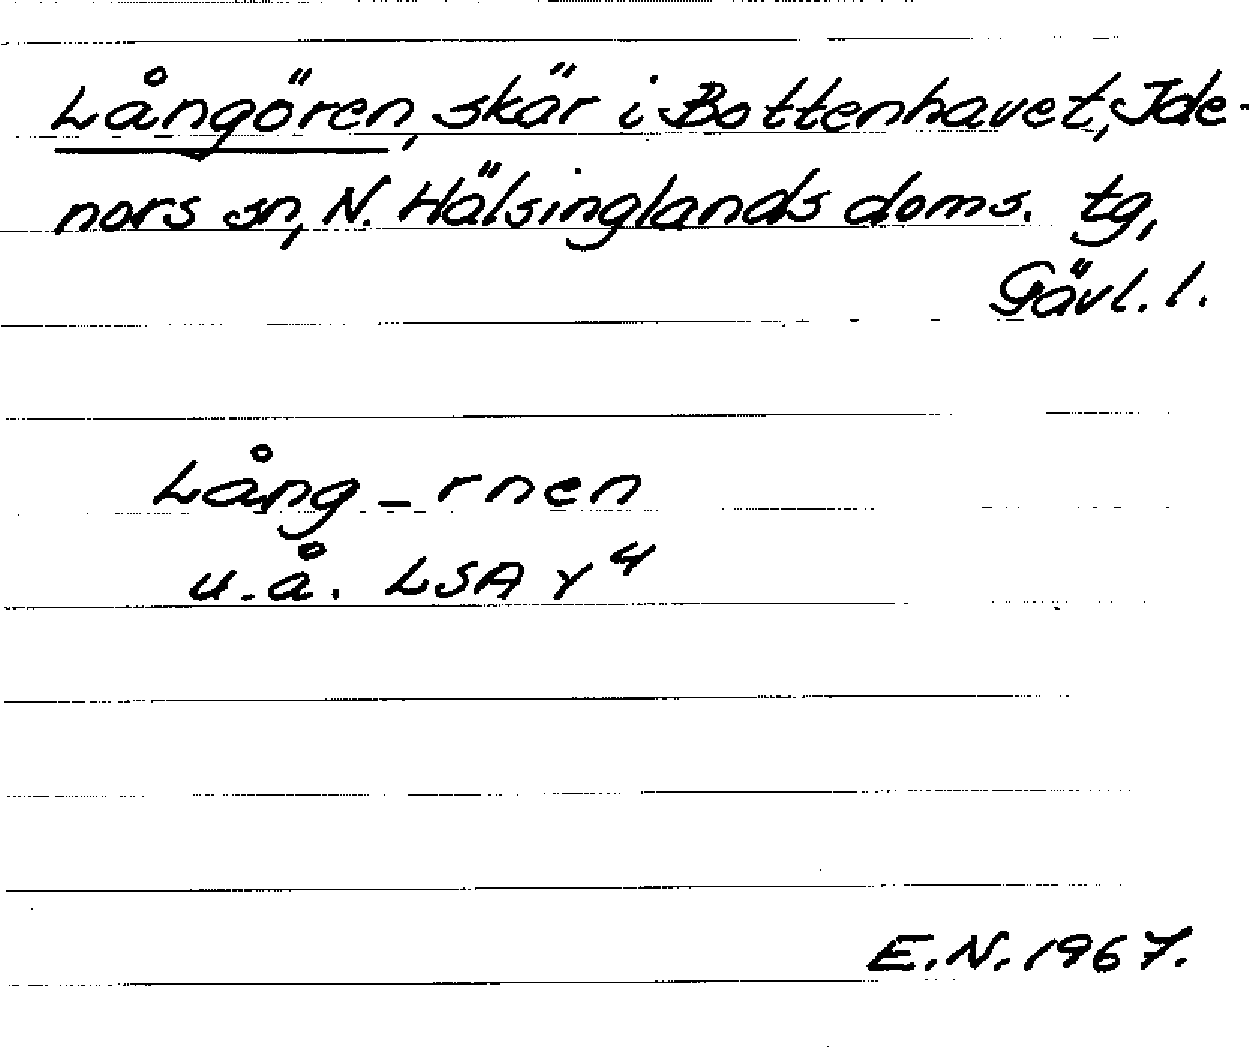 Långören, skär i Bottenhavet, Ide-
nors sn, N. Hälsinglands doms. tg,
Gävl. l.
Lång - rnen
u.å. LSA Y 4
E.N. 1967.